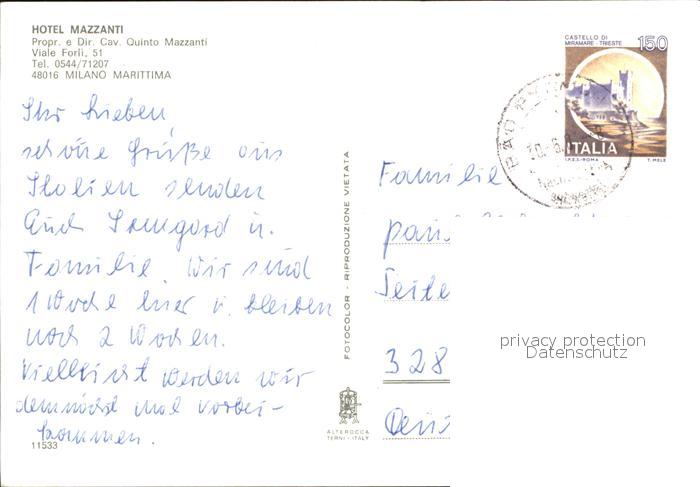 HOTEL MAZZANTI
Propr. e Dir. Cav. Quinto Mazzanti
Viale Forlì, 51
Tel. 0544/71207
48016 MILANO MARITTIMA
Ihr Lieben
schöne Grüße aus
Italien senden
Euch Irmgard u.
Familie. Wir sind
1 Woche hier u. bleiben
noch 2 Wochen.
Vielleicht werden wir
demnächst mal vorbei-
kommen.
11533
FOTOCOLOR - RIPRODUZIONE VIETATA
ALTEROCCA
TERNI - ITALY
CASTELLO DI
MIRAMARE - TRIESTE
150
ITALIA
I.P.Z.S. - ROMA
T. MELE
Familie
328
privacy protection
Datenschutz